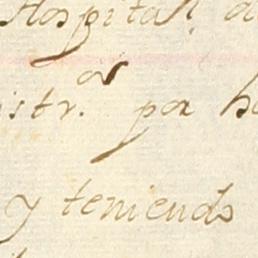 Hospital d
istr.or por h
y teniendo